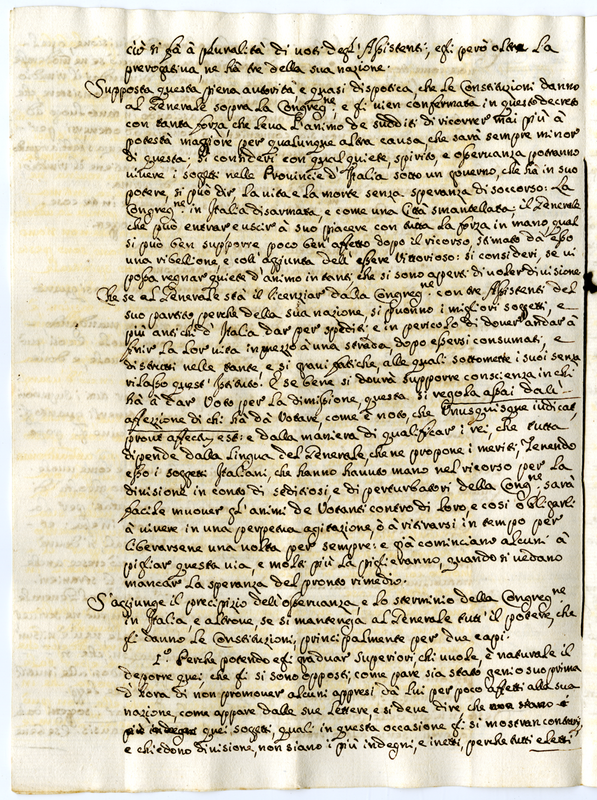 ciò si fà à pluralità di voti degl'Assistenti; egli però oltre La
prerogativa, ne hà tre della sua nazione.
Supposta questa piena autorità, e quasi dispotica, che le Constituzioni danno
al Generale sopra La Congreg.ne, e gli vien confermata in questo decreto
con tanta forza, che Leva L'animo de sudditi di ricorrer mai più à
potestà maggiore per qualunque altra causa, che sarà sempre minor
di questa; si consideri con qual quiete, spirito, e osservanza potranno
vivere i soggetti nelle Provincie d'Italia sotto un governo, che hà in suo
potere, si può dir, La vita e La morte senza speranza di soccorso: La
Congreg.ne in Italia disarmata, e come una Città smantellata; il Generale
che può entrar e uscir à suo piacere con tutta La forza in mano, qual
si può ben supporre poco ben affetto dopo il ricorso, stimato da esso
una ribellione, e coll'aggiunta dell'essere Vittorioso: si consideri, se vi
possa regnar quiete d'animo in tanti, che si sono aperti di voler divisione
Che se al Generale stà il licenziar dalla Congreg.ne con tre Assistenti del
suo partito perche della sua nazione, si ponno i migliori soggetti, e
più antichi d'Italia dar per spediti: e in pericolo di dover andar à
finir La Lor vita in mezzo à una strada, dopo essersi consumati, e
distrutti nelle tante, e si gravi fatiche, alle quali sottomette i suoi senza
rilasso quest'Istituto. E se bene si dovrà supporre conscienza in chi
hà à dar Voto per La dimissione, questa si regola assai dall'
affezione di chi hà da Votare, come è noto, che Unusquisque iudicat,
prout affectus est: e dalla maniera di qualificar i rei, che tutta
dipende dalla Lingua del Generale, che ne propone i meriti, Tenendo
esso i soggetti Italiani, che hanno havuto mano nel ricorso per La
divisione in conto di seditiosi, e di perturbatori della Cong.ne; sarà
facile muover gl'animi de Votanti contro di Loro, e così obligarli
à vivere in una perpetua agitazione, ò à ritirarsi in tempo per
liberarsene una volta per sempre: e già cominciano alcuni à
pigliar questa via, e molti più La piglieranno, quando si vedano
mancar La speranza del pronto rimedio.
S'aggiunge il precipizio dell'osservanza, e lo sterminio della Congreg.ne
in Italia, e altrove, se si mantenga al Generale tutt'il potere, che
gli danno le Constituzioni, principalmente per due capi.
1.o Perche potendo egli graduar Superiori, chi vuole, è naturale il
deporre quei, che gli si sono opposti; come pare sia stato genio suo prima
d'hora di non promover alcuni appresi da Lui per poco affetti alla sua
nazione, come appare dalle sue Lettere, e si deve dire che
quei soggetti, quali in questa occasione gli si mostran contrarij,
e chiedono divisione, non siano i più indegni, e inetti, perche tutti eletti